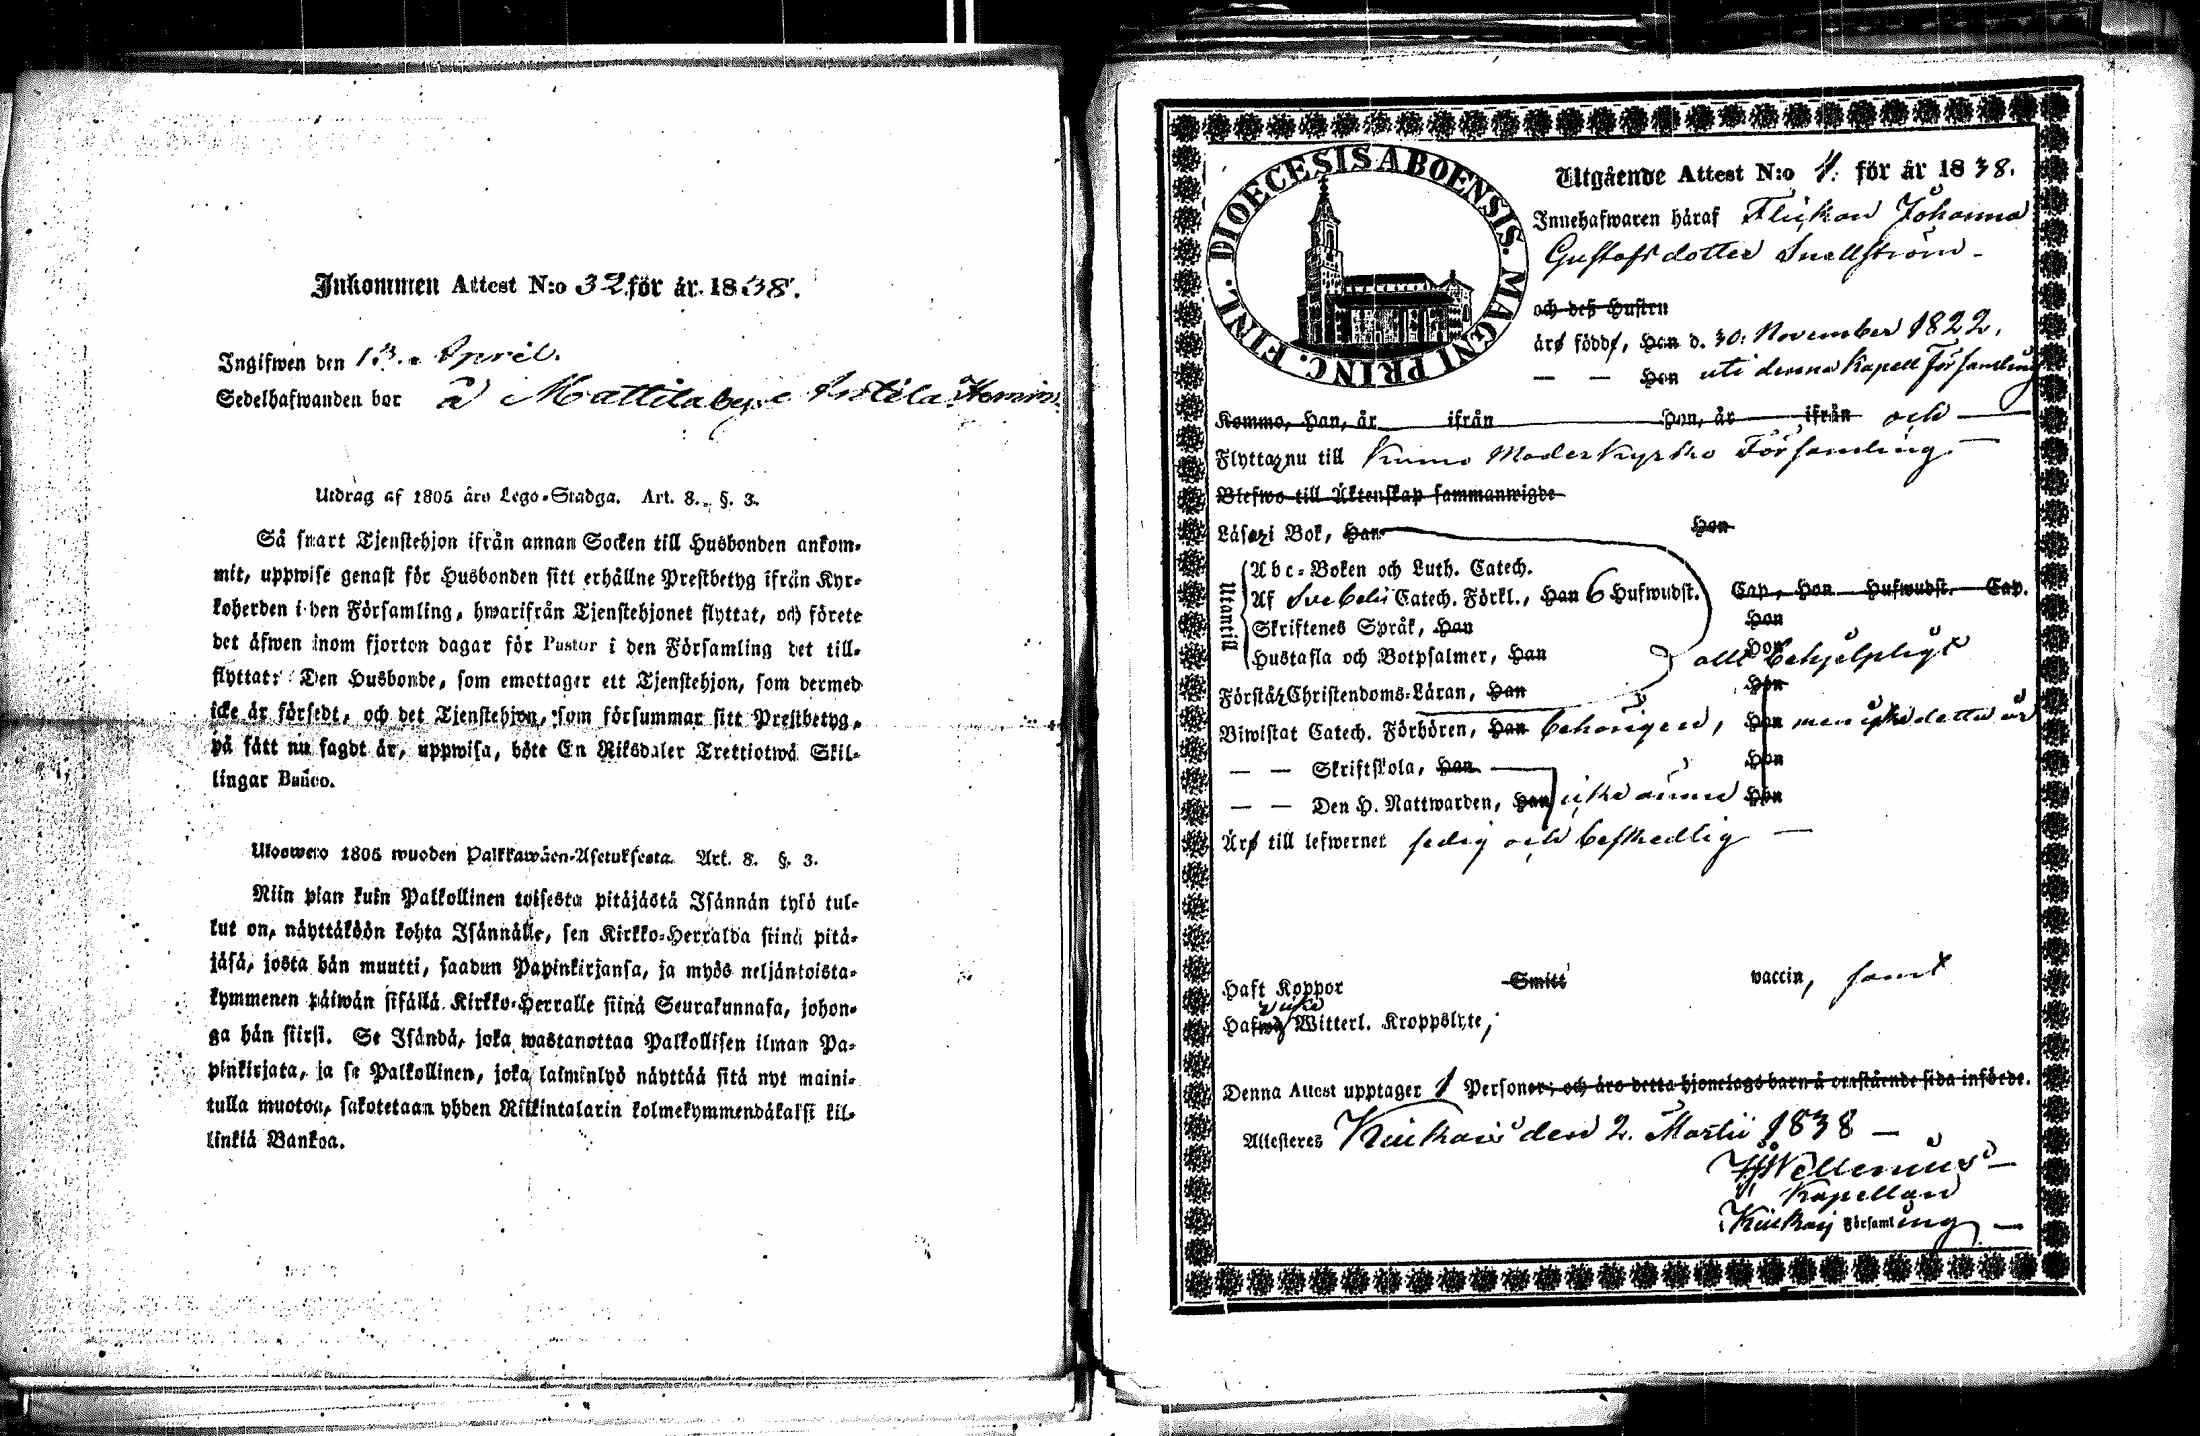 Inkommen Attest N:o 32 för år 1838.
Ingifwen den 13. April.
Sedelhafwanden bor å Mattilaby Anttila
Utdrag af 1805 års Lego-Stadga. Art. 8. §. 3.
Så snart Tjenstehjon ifrån annan Socken till Husbonden ankom-
mit, uppwise genast för Husbonden sitt erhållne Prestbetyg ifrån Kyr-
koherden i den Församling, hwarifrån Tjenstehjonet flyttat, och förete
det äfwen inom fjorton dagar för Pastor i den Församling det till-
flyttat: Den Husbonde, som emottager ett Tjenstehjon, som dermed
icke är försedt, och det Tjenstehjon, som försummar sitt Prestbetyg,
på sätt nu sagdt är, uppwisa, böte En Riksdaler Trettiotwå Skil-
lingar Banco.
Uloswero 1805 wuoden Palkkawäen-Asetuksesta. Art. 8. §. 3.
Niin pian kuin Palkollinen toisesta pitäjästä Isännän työ tul-
lut on, näyttäköön kohta Isännälle, sen Kirkko-Herralda siinä pitä-
jäsä, josta hän muutti, saadun Papinkirjansa, ja myös neljäntoista-
kymmenen päiwän sisällä Kirkko-Herralle siinä Seurakunnasa, johon-
ga hän siirsi. Se Isändä, joka wastanottaa Palkollisen ilman Pa-
pinkirjata, ja se Palkollinen, joka laiminlyö näyttää sitä nyt maini-
tulla muotoa, sakotetaan yhden Riikintalarin kolmekymmendäkaksi kil-
linkiä Bankoa.
DIOECESIS ABOENSIS. MAGNI PRINC. FINL.
Utgående Attest N:o 4. för år 1838.
Innehafwaren häraf Flickan Johanna
Gustafsdotter Snellström
och deß Hustru
äro födde, Han d. 30. November 1822.
— — Hon uti denna Kapell Församling
Komma, Han, år ifrån Hon, år ifrån och
Flyttar nu till Kumo Moderkyrko Församling
Blefwo till Äktenskap sammanwigde
Läsa i Bok, Han Hon
Utantill
Abc-Boken och Luth. Catech.
Af Svebelii Catech. Förkl., Han 6 Hufwudst. Cap, Hon Hufwudst. Cap.
Skriftenes Språk, Han Hon
Hustafla och Botpsalmer, Han Hon allt behjelpligt
Förstår Christendoms-Läran, Han Hon
Biwistat Catech. Förhören, Han behörigen, Hon men icke detta år
— — Skriftskola, Han Hon
— — Den H. Nattwarden, Han icke ännu Hon
Äro till lefwernet sedig och beskedlig
Haft Koppor Smitt vaccin, samt
Hafwa icke Witterl. Kroppslyte,
Denna Attest upptager 1 Personer, och äro detta hjonelags barn å omstående sida införde.
Attesteres Kiukais den 2. Martii 1838
Kapellan
Kiukais Församling